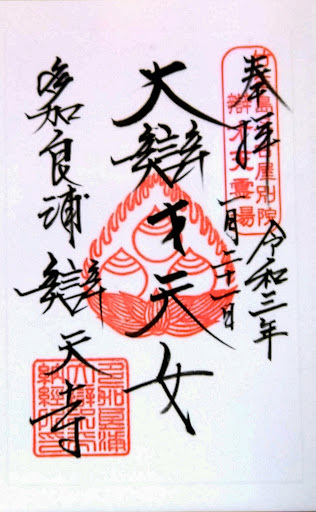 奉拝
令和三年
一月二十一日
竹生島名古屋別院
辯才天霊場
大辯才天女
多加良浦
辯天寺